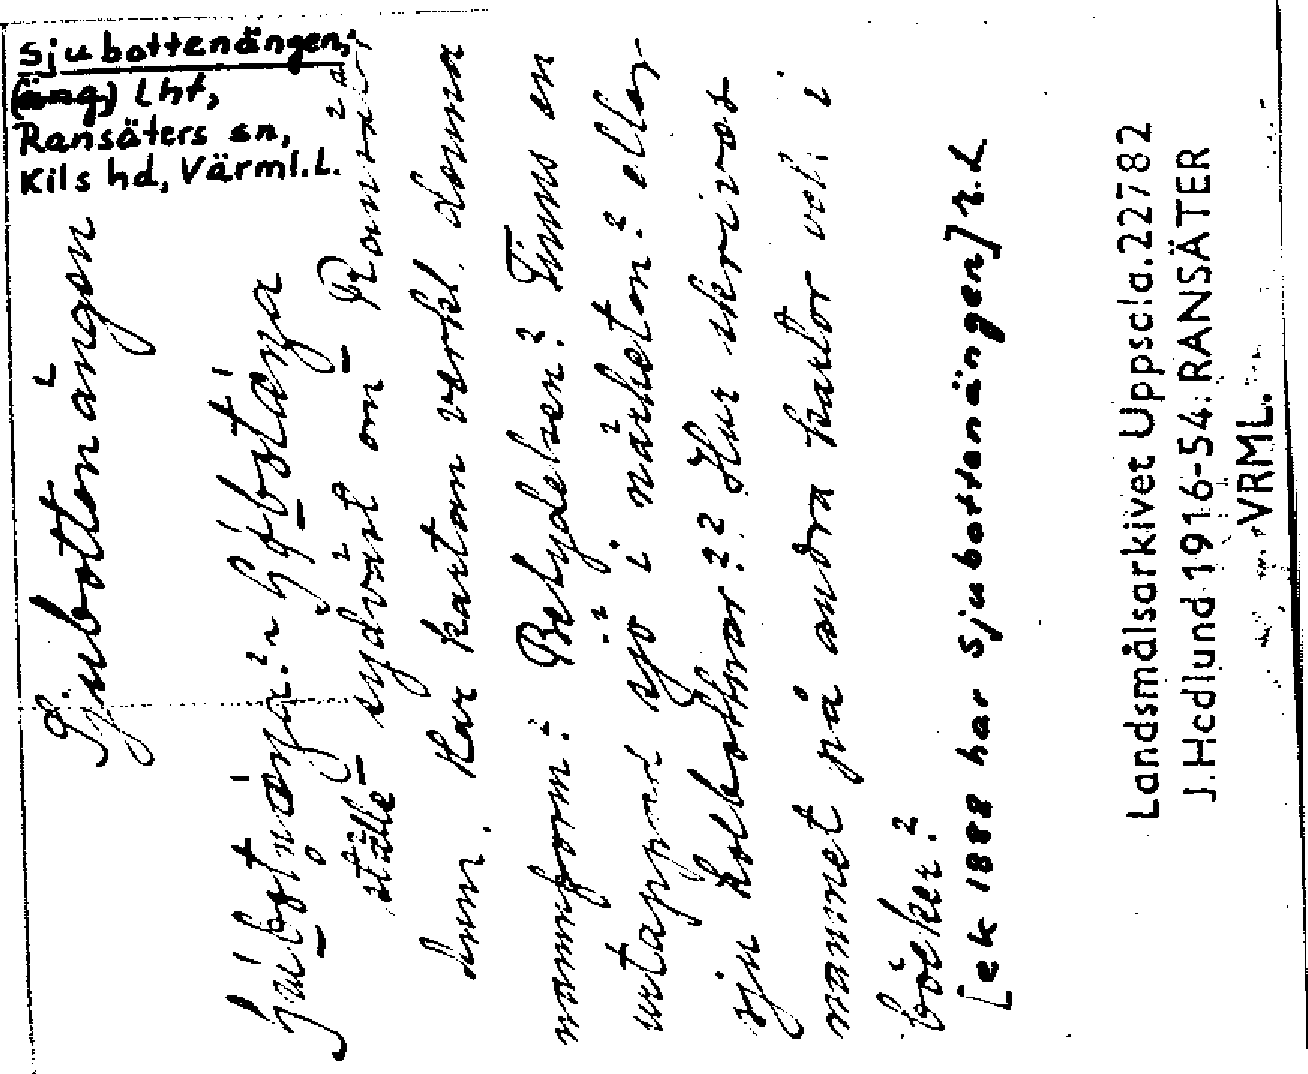 Sjubottenängen,
(äng) Lht,
Ransäters sn,
Kils hd, Värml.L.
Sjubottenängen
ställe sydväst om Ransäter
dum. Har kartan verkl. denna
namnform? Betydelsen? Finns en
urtappad sjö i närheten? eller
sju kolbottnar?? Hur skrivos
namnet på andra kartor och i
böcker?
[ek 1888 har sjubottenängen] R.L
Landsmålsarkivet Uppscla.22782
J.Hedlund 1916-54: RANSÄTER
VRML.